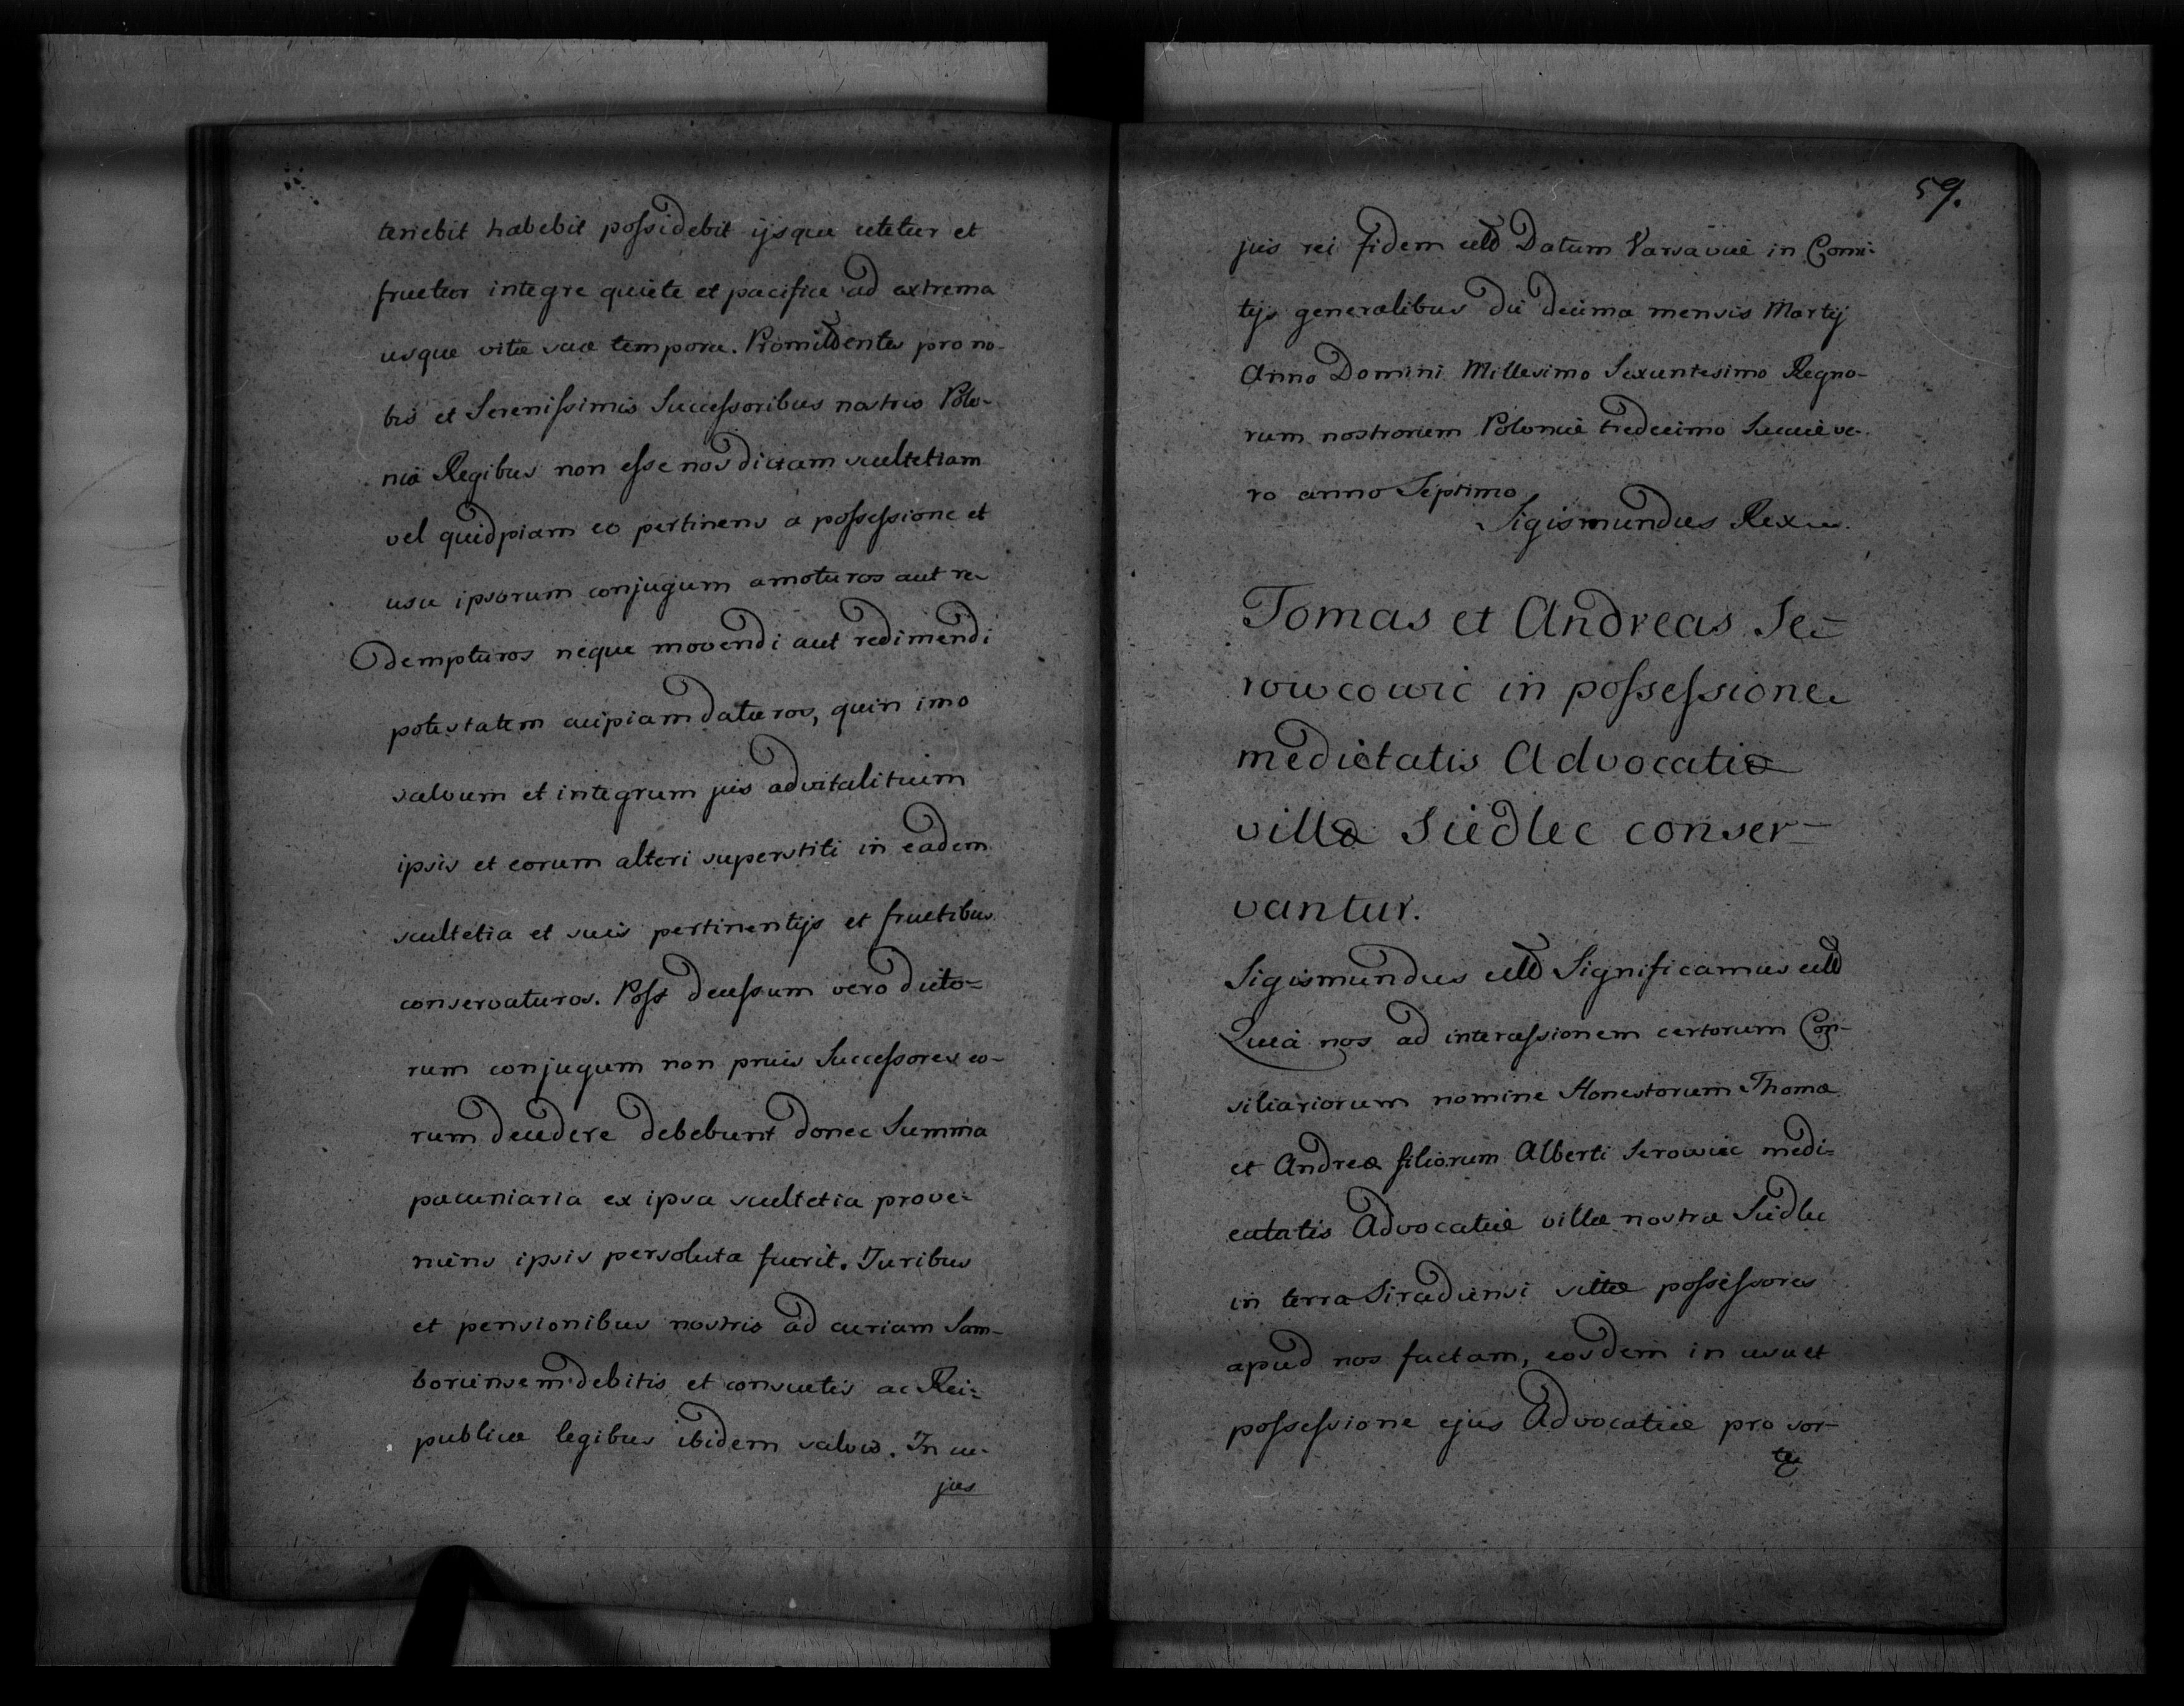 tenebit habebit possidebit ijsque utetur et
fruetur integre quiete et pacifice ad extrema
usque vitæ suæ tempora. Promittentes pro no-
bis et Serenissimis Successoribus nostris Polo-
niæ Regibus non esse nos dictam scultetiam
vel quidpiam eo pertinens a possessione et
usu ipsorum conjugum amoturos aut re-
dempturos neque movendi aut redimendi
potestatem cuipiam daturos, quin imo
salvum et integrum jus advitalitium
ipsis et eorum alteri superstiti in eadem
scultetia et suis pertinentijs et fructibus
conservaturos. Post decessum vero dicto=
rum conjugum non prius Successores eo-
rum decedere debebunt donec Summa
pecuniaria ex ipsa scultetia prove=
niens ipsis persoluta fuerit. Juribus
et pensionibus nostris ad curiam Sam-
boriensem debitis et consuetis ac Rei=
publicæ legibus ibidem salvis. In cu-
jus
59.
jus rei fidem etc Datum Varsaviæ in Comi-
tijs generalibus die decima mensis Martij
Anno Domini Millesimo Sexcentesimo Regno-
rum nostrorum Poloniæ tredecimo Sueciæ ve-
ro anno Septimo
Sigismundus Rex
Tomas et Andreas Se=
rowcowic in possessione
medietatis Advocatiæ
villæ Siedlec conser=
vantur.
Sigismundus etc Significamus etc
Quia nos ad intercessionem certorum Con-
siliariorum nomine Honestorum Thomæ
et Andreæ filiorum Alberti Serowiec medi=
eatatis Advocatiæ villæ nostræ Siedlec
in terra Siradiensi sittæ possessores
apud nos factam, eosdem in usu et
possessione ejus Advocatiæ pro sor-
te